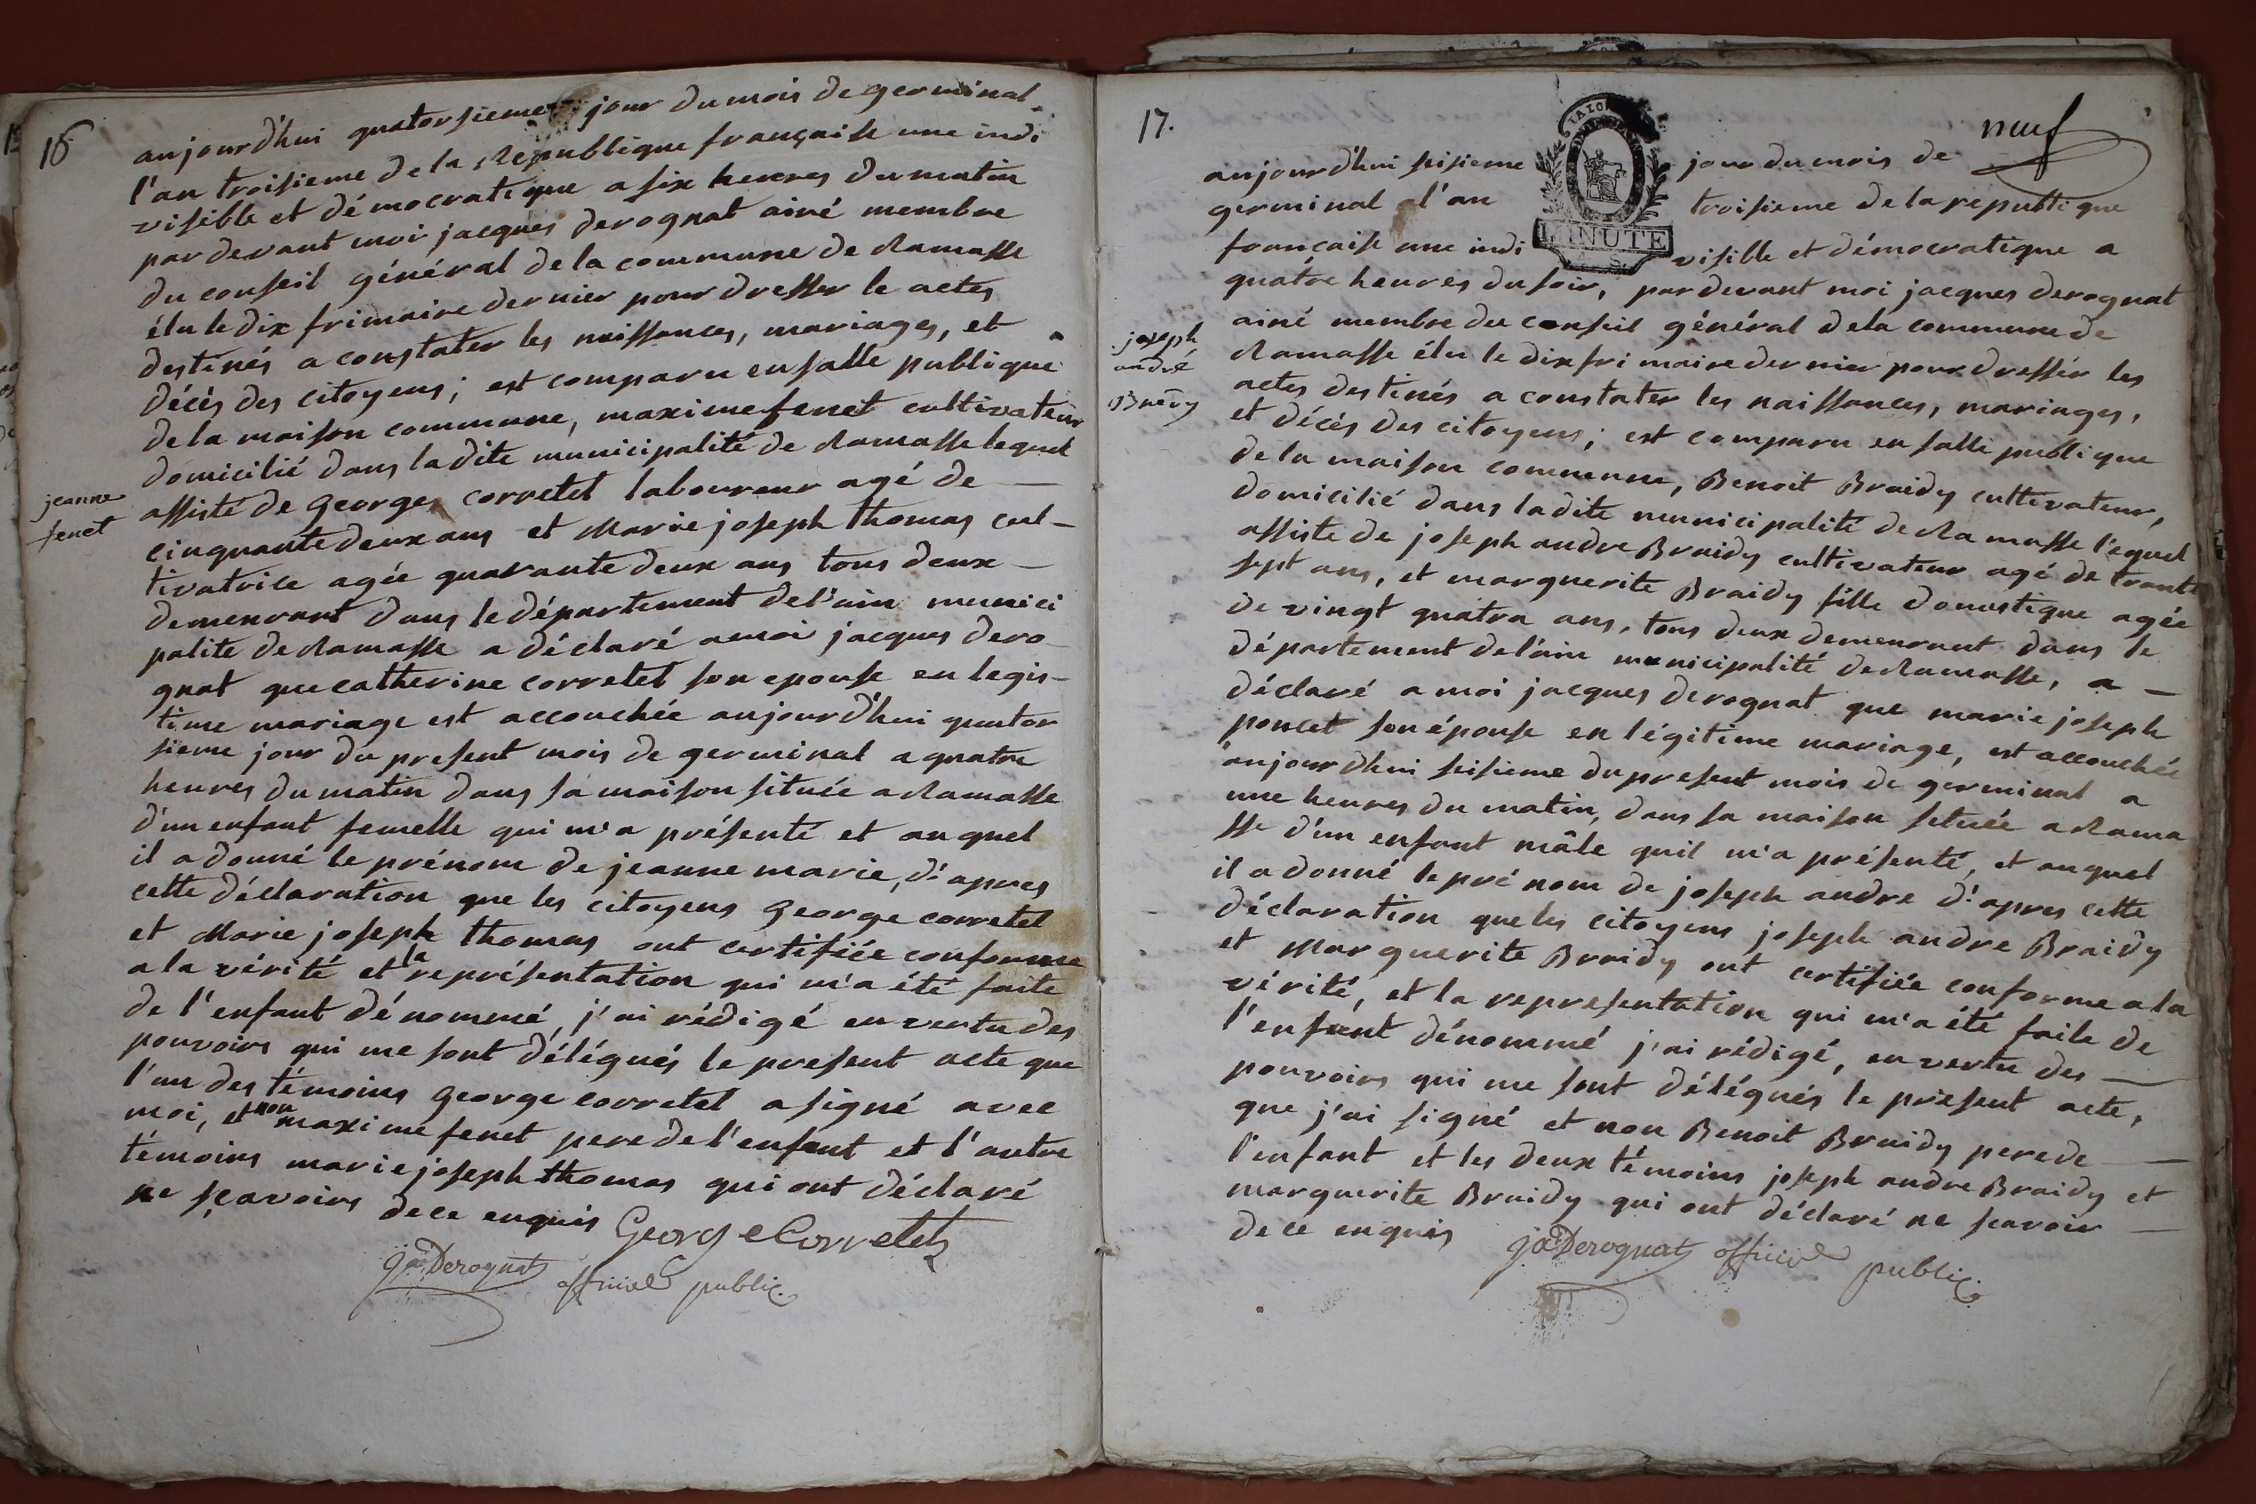 16
aujourd'hui quatorsieme jour du mois de germinal
l'an troisieme de la republique française une indi
visible et démocratique a six heures du matin
par devant moi jacques derognat ainé membre
du conseil général de la commune de Ramasse
élu le dix frimaire dernier pour dresser le actes
destinés a constater les naissances, mariages, et
décès des citoyens; est comparu en salle publique
de la maison commune, maxime fenet cultivateur
domicilié dans la dite municipalité de Ramasse lequel
assisté de George corretel laboureur agé de
cinquante deux ans et Marie joseph thomas cul-
tivatrice agée quarante deux ans tous deux
demeurant dans le département de l'ain munici
palité de Ramasse a déclaré a moi jacques dero
gnat que catherine corretel son epouse en legis-
time mariage est accouchée aujourd'hui quator
sieme jour du present mois de germinal a quatre
heures du matin dans sa maison située a Ramasse
d'un enfant femelle qui m'a présenté et auquel
il a donné le prénom de jeanne marie, d'apres
cette déclaration que les citoyens George corretel
et Marie joseph thomas ont certifiée conforme
a la vérité et la représentation qui m'a été faite
de l'enfant dénommé, j'ai rédigé en vertu des
pouvoirs qui me sont délégués le present acte que
l'un des témoins George corretel a signé avec
moi, et non maxime fenet pere de l'enfant et l'autre
témoins marie joseph thomas qui ont déclaré
ne sçavoirs de ce enquis George Corretel
jeanne
fenet
jas Derognat officié public.
17.
neuf
TALON
MINUTE
aujourd'hui seisieme jour du mois de
germinal l'an troisieme de la republique
française une indi visible et démocratique a
quatre heures du soir, par devant moi jacques derognat
ainé membre du conseil général de la commune de
Ramasse élu le dix fri maire dernier pour dressér les
actes destinés a constater les naissances, mariages,
et décès des citoyens; est comparu en salle publique
de la maison commune, Benoit Braidy cultivateur,
domicilié dans la dite municipalité de Ramasse l'equel
assisté de joseph andre Braidy cultivateur agé de trante
sept ans, et marguerite Braidy fille domestique agée
de vingt quatra ans, tous deux demeurant dans le
département de l'ain municipalité de Ramasse, a
déclaré a moi jacques derognat que marie joseph
poncet son épouse en légitime mariage, est accouchée
aujourdhui seisieme du present mois de germinal a
une heures du matin, dans sa maison située a Rama
sse d'un enfant mâle quil m'a présenté, et auquel
il a donné le pré nom de joseph andre d'apres cette
déclaration que les citoyens joseph andre Braidy
et Marguerite Braidy ont certifiée conforme a la
vérité, et la representation qui m'a été faite de
l'enfant dénommé j'ai rédigé, en vertu des
pouvoirs qui me sont délégués le present acte,
que j'ai signé et non Benoit Braidy pere de
l'enfant et les deux témoins joseph andre Braidy et
marguerite Braidy qui ont déclaré ne scavoir
de ce enquis
joseph
andré
jas Derognat officié public.